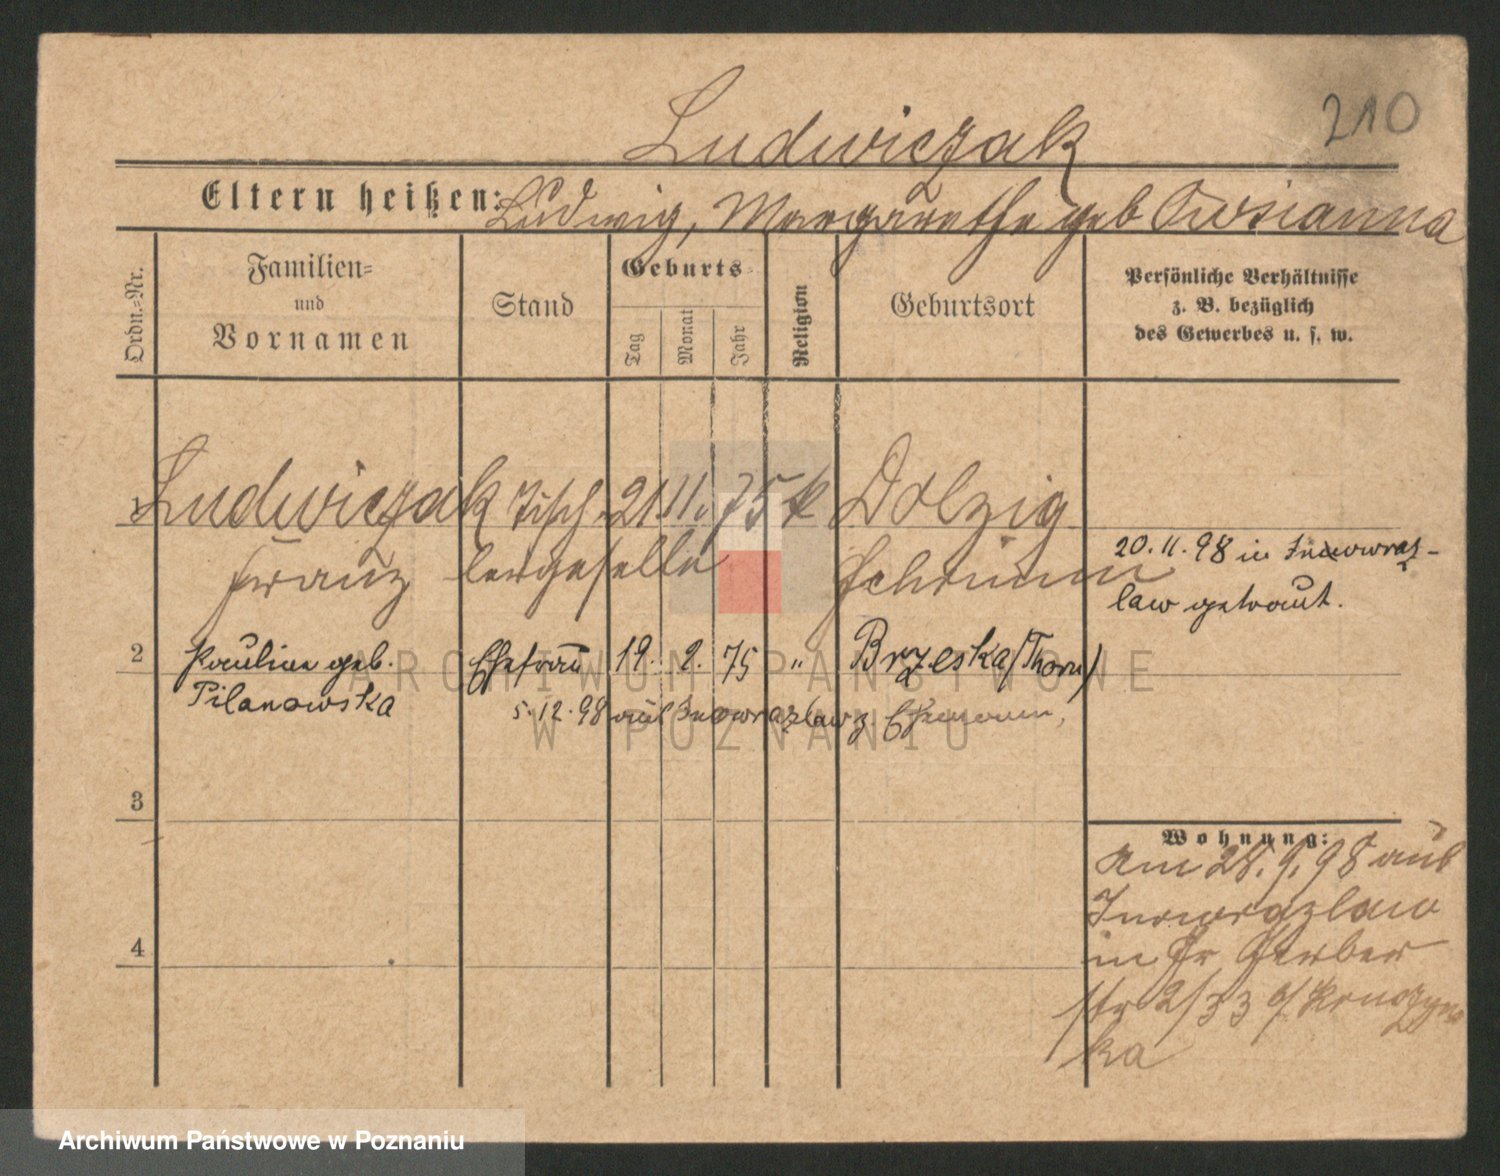 210
Ludwiczak
Eltern heißen: Ludwig, Margarethe geb
Ordn.=Nr.
Familien=
und
Vornamen
Stand
Geburts=
Tag
Monat
Jahr
Religion
Geburtsort
Persönliche Verhältnisse
z. B. bezüglich
des Gewerbes u. s. w.
1 Ludwiczak Tisch- 21. 11. 75 k Dolzig
Franz lergeselle Schrimm
20.11.98 in Inowraz-
law getraut.
2 Pauline geb. Ehefrau 19. 2. 75 " Brzeska (Thorn)
Pilanowska
5.12.98 aus Inowrazlaw z. Ehemann,
3
4
Wohnung:
Am 28.9.98 aus
Inowrazlaw
in Gr Gerber
str 2/33
ka
ARCHIWUM PAŃSTWOWE
W POZNANIU
Archiwum Państwowe w Poznaniu